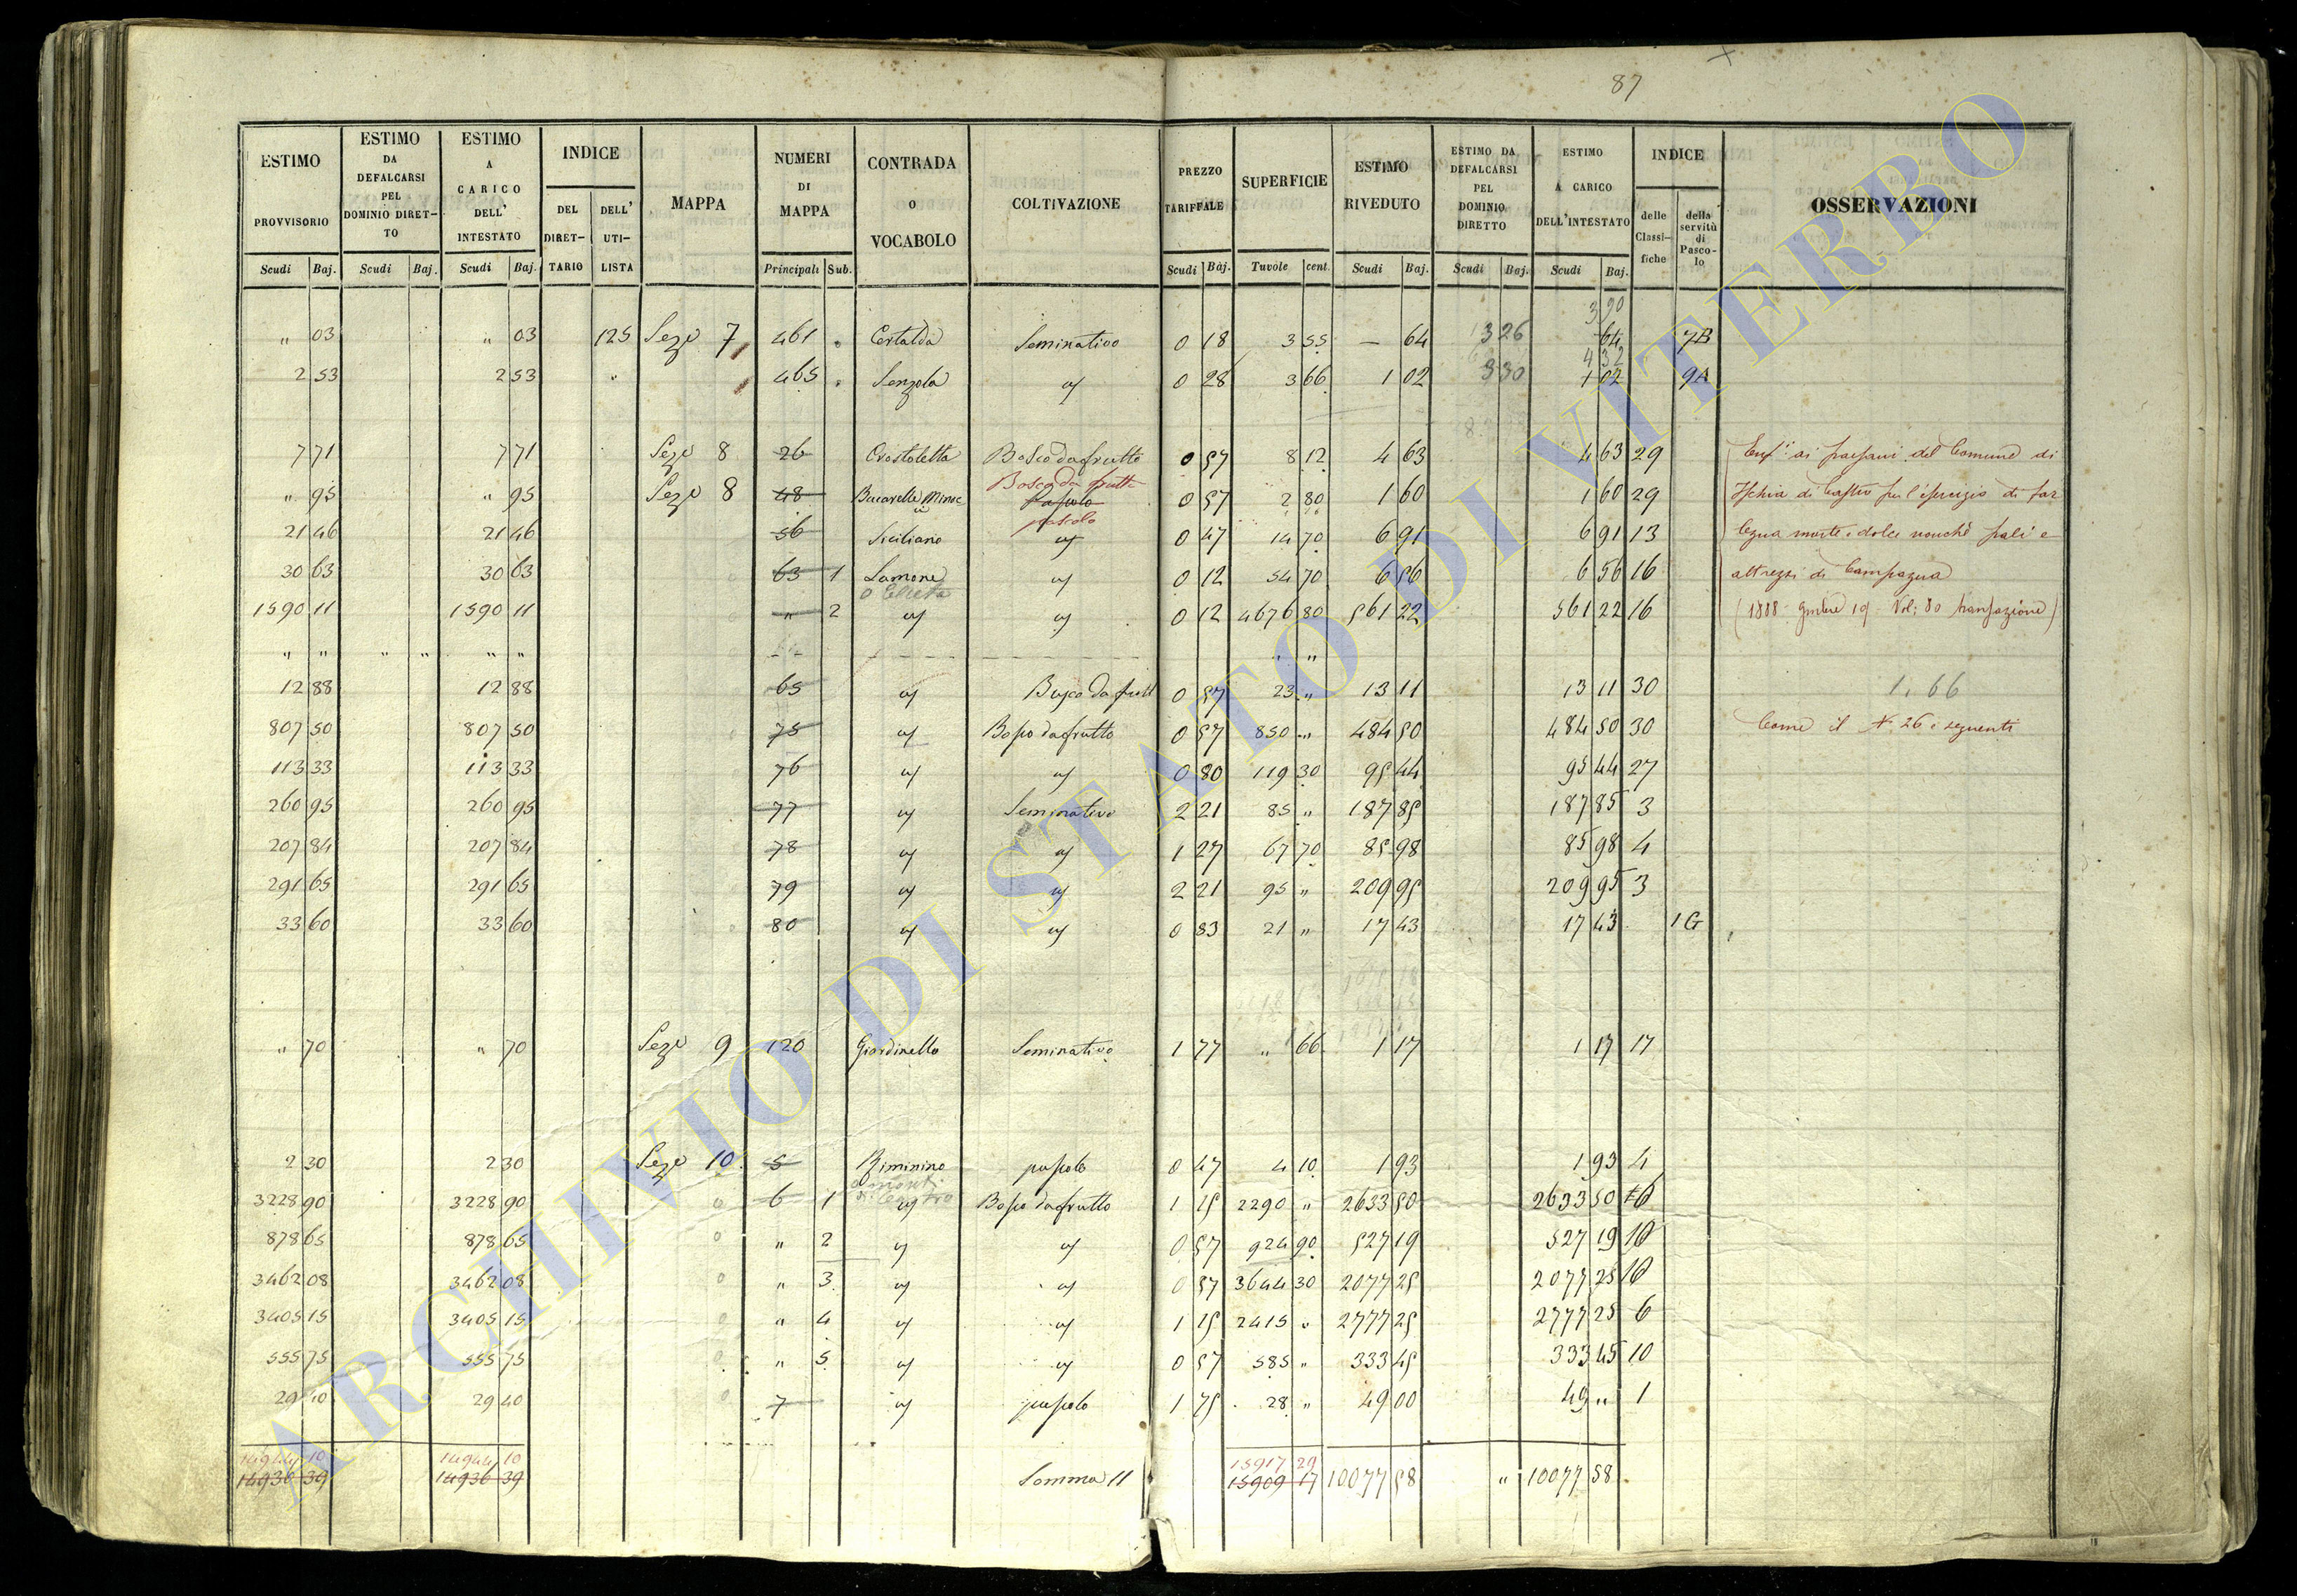 87
ESTIMO PROVVISORIO Scudi Baj.
ESTIMO DA DEFALCARSI PEL DOMINIO DIRETTO Scudi Baj.
ESTIMO A CARICO DELL' INTESTATO Scudi Baj.
INDICE DEL DIRETTARIO DELL' UTILISTA
MAPPA
NUMERI DI MAPPA Principali Sub.
CONTRADA O VOCABOLO
COLTIVAZIONE
PREZZO TARIFFALE Scudi Baj.
SUPERFICIE Tavole cent.
ESTIMO RIVEDUTO Scudi Baj.
ESTIMO DA DEFALCARSI PEL DOMINIO DIRETTO Scudi Baj.
ESTIMO A CARICO DELL'INTESTATO Scudi Baj.
INDICE delle Classifiche della servitù di Pascolo
OSSERVAZIONI
3 90
" 03 " 03 125 Seze 7 461 " Certalda Seminativo 0 18 3 55 — 64 3 26 64 7B
4 32
2 53 2 53 " 465 " Senzola " 0 28 3 66 1 02 3 30 1 02 9A
7 71 7 71 Seze 8 26 Crostoletta Bosco da frutto 0 57 8 12 4 63 4 63 29
Bosco da frutto
" 95 " 95 Seze 8 48 Pascolo 0 57 2 80 1 60 1 60 29
pascolo
21 46 21 46 56 Siciliano " 0 47 14 70 6 91 6 91 13
30 63 30 63 63 1 Lamone " 0 12 54 70 6 56 6 56 16
1590 11 1590 11 " 2 " " 0 12 4676 80 561 22 561 22 16
" " " " " " " "
12 88 12 88 65 " Bosco da frutt 0 57 23 " 13 11 13 11 30
807 50 807 50 75 " Bosco da frutto 0 57 850 " 484 50 484 50 30
113 33 113 33 76 " " 0 80 119 30 95 44 95 44 27
260 95 260 95 77 " Seminativo 2 21 85 " 187 85 187 85 3
207 84 207 84 78 " " 1 27 67 70 85 98 85 98 4
291 65 291 65 79 " " 2 21 95 " 209 95 209 95 3
33 60 33 60 80 " " 0 83 21 " 17 43 17 43 1G
" 70 " 70 Seze 9 120 Giardinello Seminativo 1 77 " 66 1 17 1 17 17
2 30 2 30 Seze 10 5 Riminino pascolo 0 47 4 10 1 93 1 93 4
3228 90 3228 90 6 1 " Bosco da frutto 1 15 2290 " 2633 50 2633 50 6
878 65 878 65 " 2 " " 0 57 924 90 527 19 527 19 10
3462 08 3462 08 " 3 " " 0 57 3644 30 2077 25 2077 25 10
3405 15 3405 15 " 4 " " 1 15 2415 " 2777 25 2777 25 6
555 75 555 75 " 5 " " 0 57 585 " 333 45 333 45 10
29 40 29 40 7 " pascolo 1 75 28 " 49 00 49 " 1
14944 10 14944 10 15917 29
14936 39 14936 39 Somma 11 15909 17 10077 58 " 10077 58
ai paesani del Comune di
Ischia di Castro per l'esercizio di far
legna morte e dolce nonché pali e
attrezzi di Campagna
19 Vol: 80 transazione)
1. 66
Come il N. 26 e seguenti
ARCHIVIO DI STATO DI VITERBO